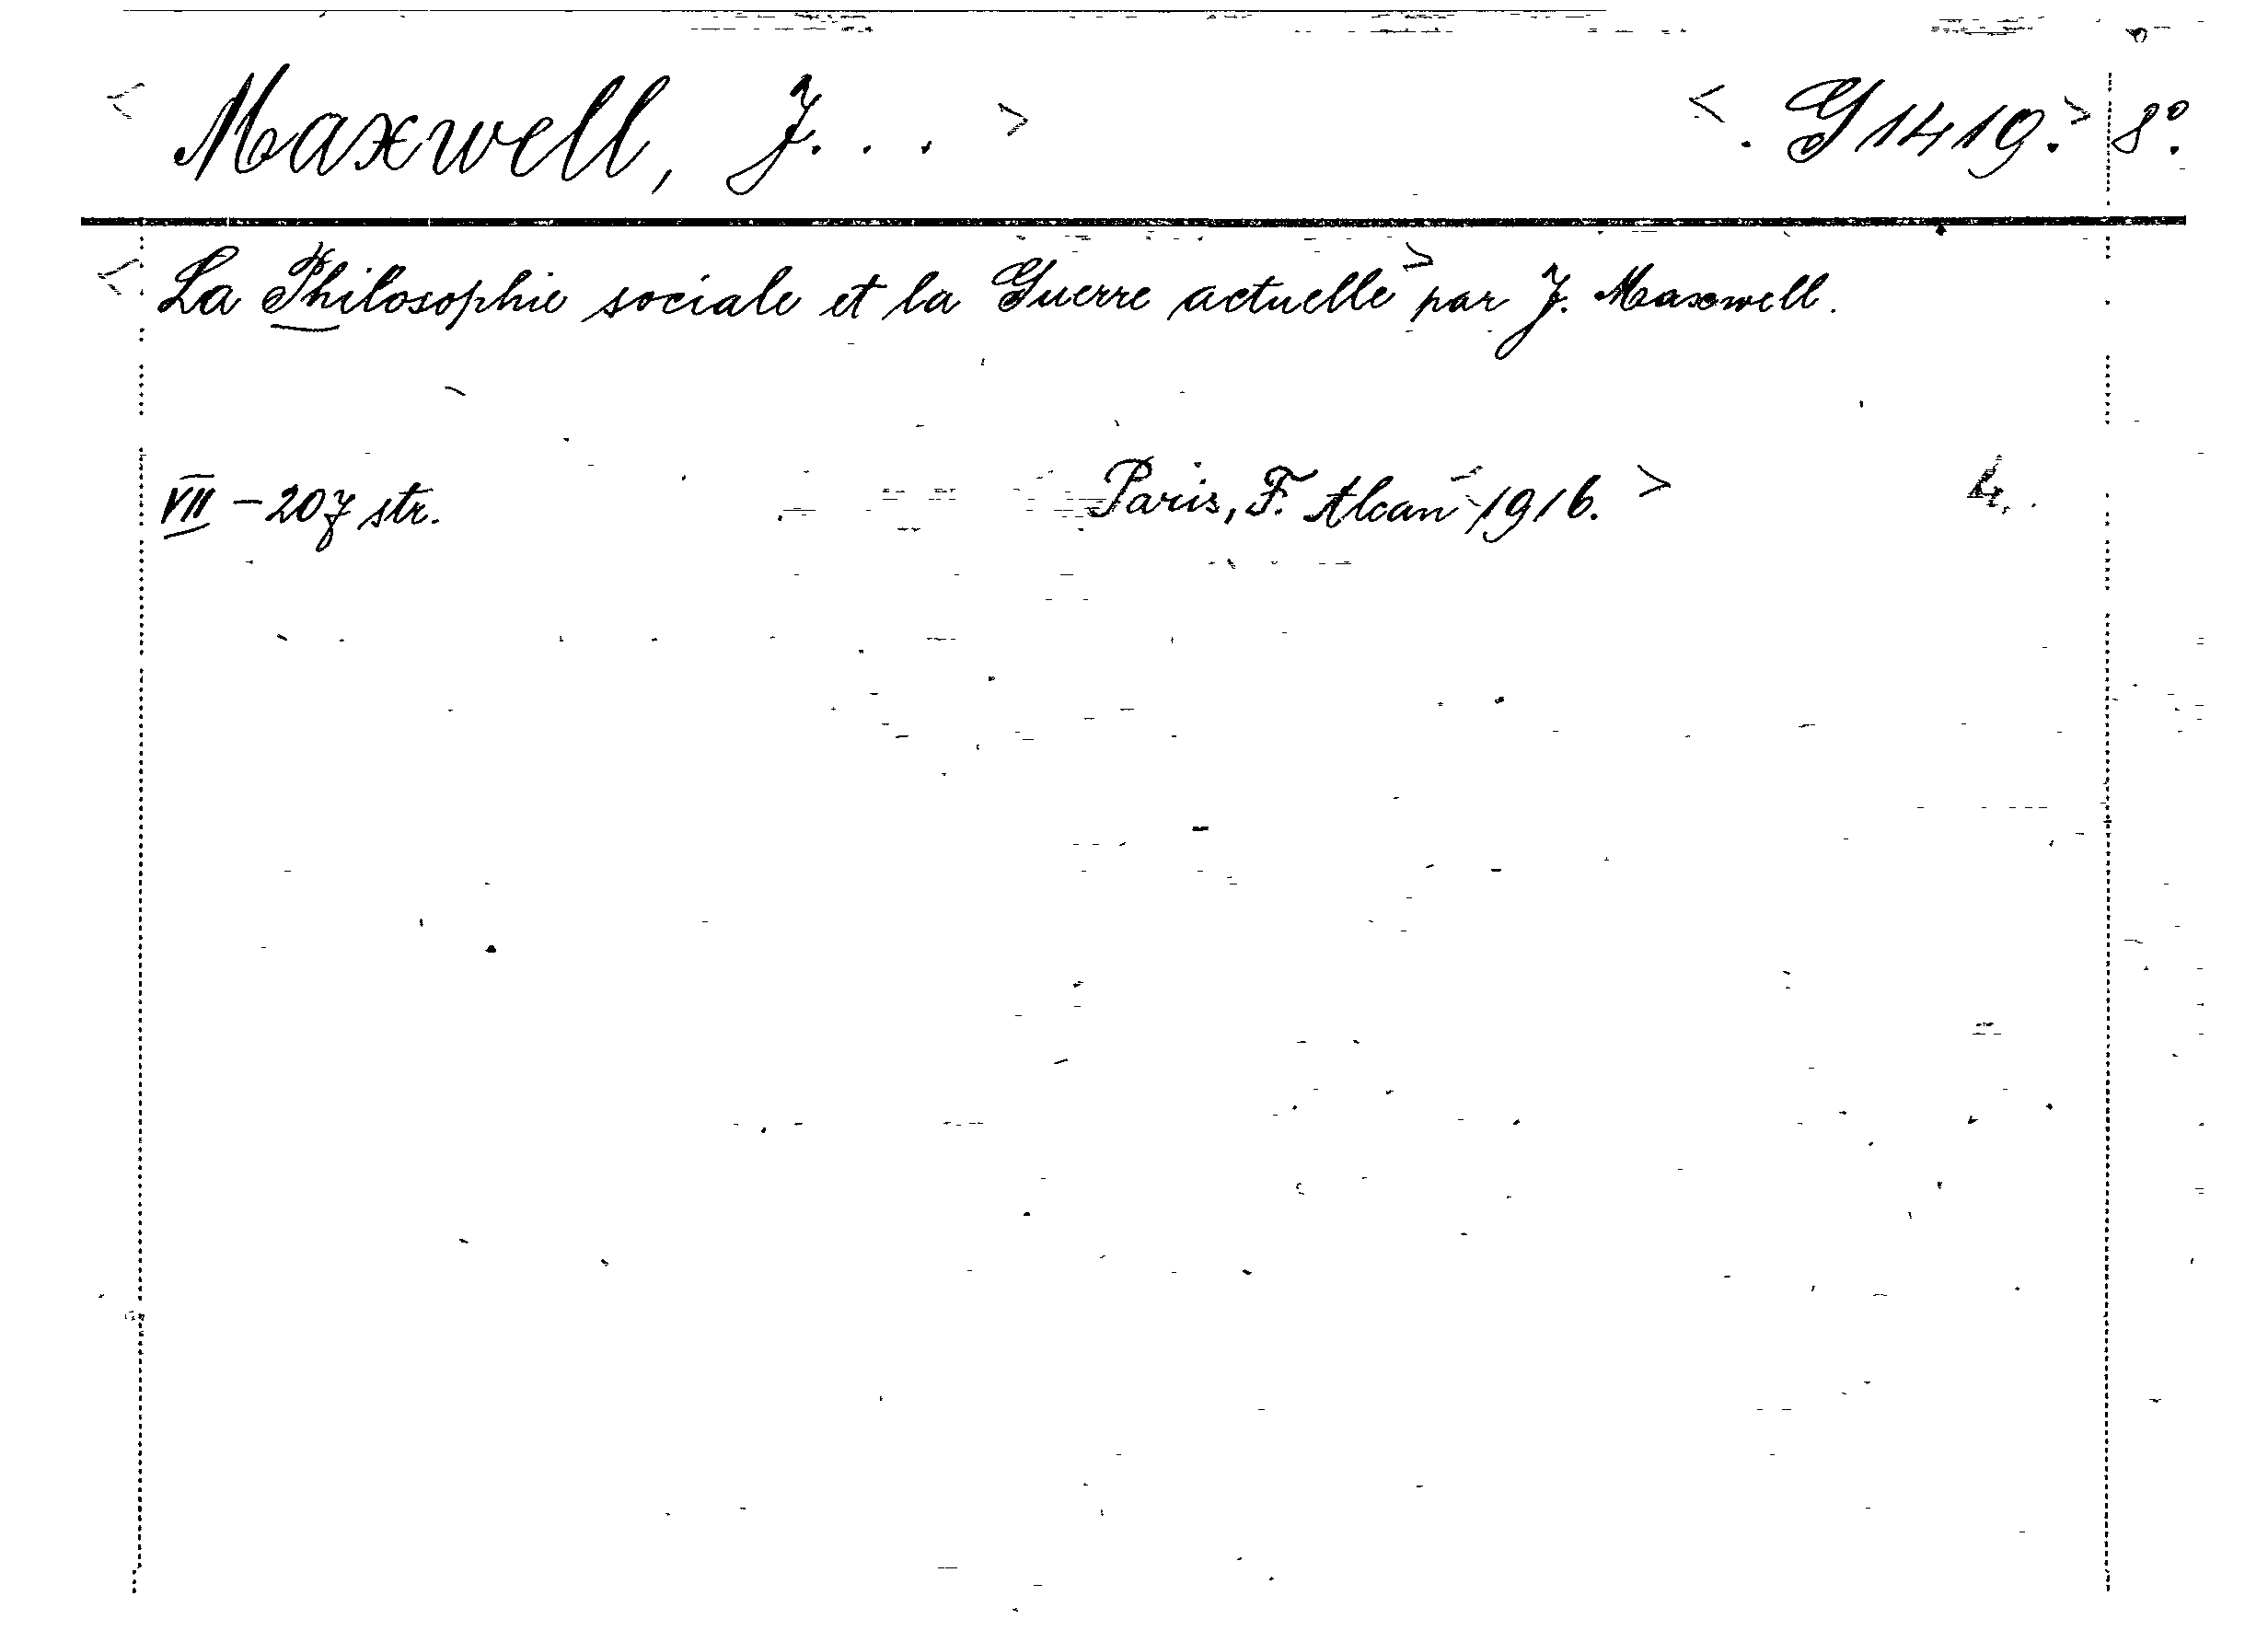 < Maxwell, J. . . > < . G 1419. > 8°.
< La Philosophie sociale et la Guerre actuelle > par J. Maxwell.
VII – 207 str. Paris, F. Alcan < 1916. > 4.